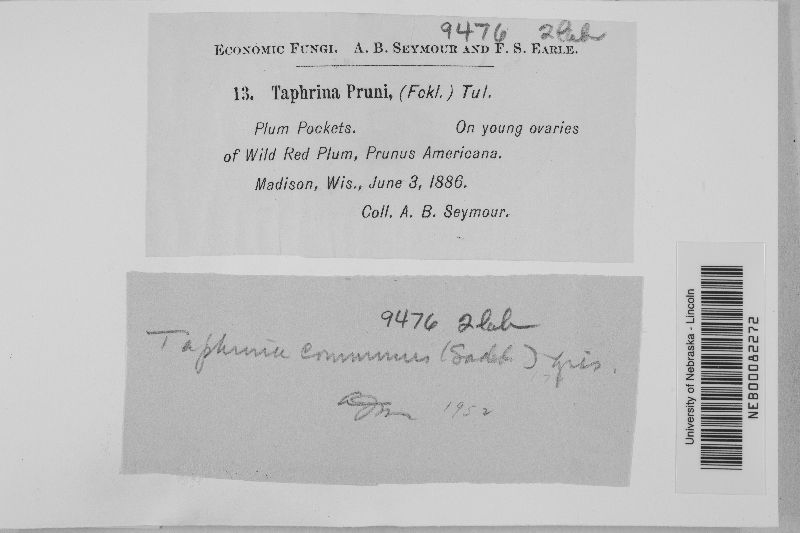 9476 2lab
Economic Fungi. A. B. Seymour and F. S. Earle.
13. Taphrina Pruni, (Fckl.) Tul.
Plum Pockets. On young ovaries
of Wild Red Plum, Prunus Americana.
Madison, Wis., June 3, 1886.
Coll. A. B. Seymour.
9476 2lab
Taphrina communis (Sadeb.) Gies.
1952
University of Nebraska - Lincoln
NEB00082272